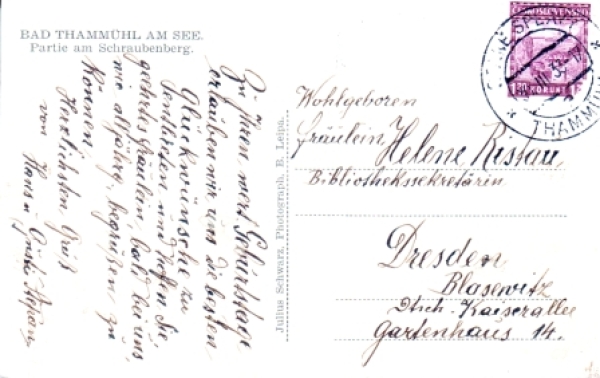 BAD THAMMÜHL AM SEE.
Partie am Schraubenberg.
Zu Ihrem wert. Geburtstage
erlauben wir uns die besten
Glückwünsche zu
und hoffen Sie
geehrtes Fräulein, bald bei uns
wie alljährig, begrüßen zu
können.
Herzlichsten Gruß
von
Julius Schwarz, Photograph, B. Leipa.
ČESKOSLOVENSKO
1.20 KORUNY
THAMMÜHL
Wohlgeboren
Fräulein Helene Ristau
Bibliothekssekretärin
Dresden
Blasewitz
Dtsch. Kaiserallee
Gartenhaus 14.